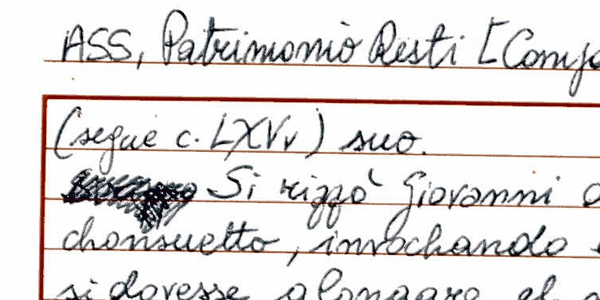 ASS, Patrimonio Resti [Comp
(segue c. LXVv) suo.
Si rizzò Giovanni
chonsuetto, invochando
si dovesse alongare el